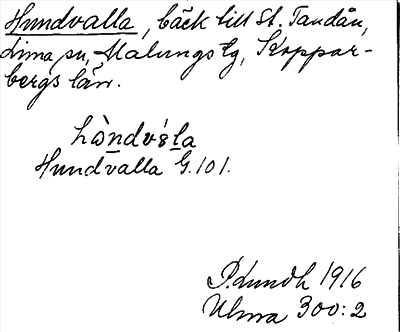 Hundvalla, bäck till St. Tandån,
Lima sn, Malungs tg, Koppar-
bergs län.
Hundvalla G. 101.
P. Lundh 1916
Ulma 300:2